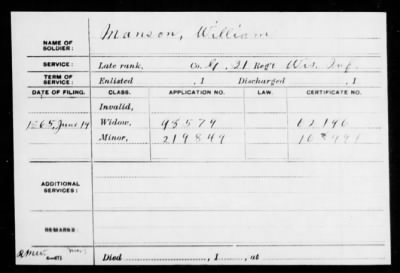 Manson, William
NAME OF SOLDIER:
SERVICE: Late rank, Co. G, 21 Reg't Wis. Inf.
TERM OF SERVICE: Enlisted , 1 Discharged , 1
DATE OF FILING. CLASS. APPLICATION NO. LAW. CERTIFICATE NO.
Invalid,
1865, June 19 Widow, 98579 62190
Minor, 219849
ADDITIONAL SERVICES:
REMARKS:
Died , 1 , at